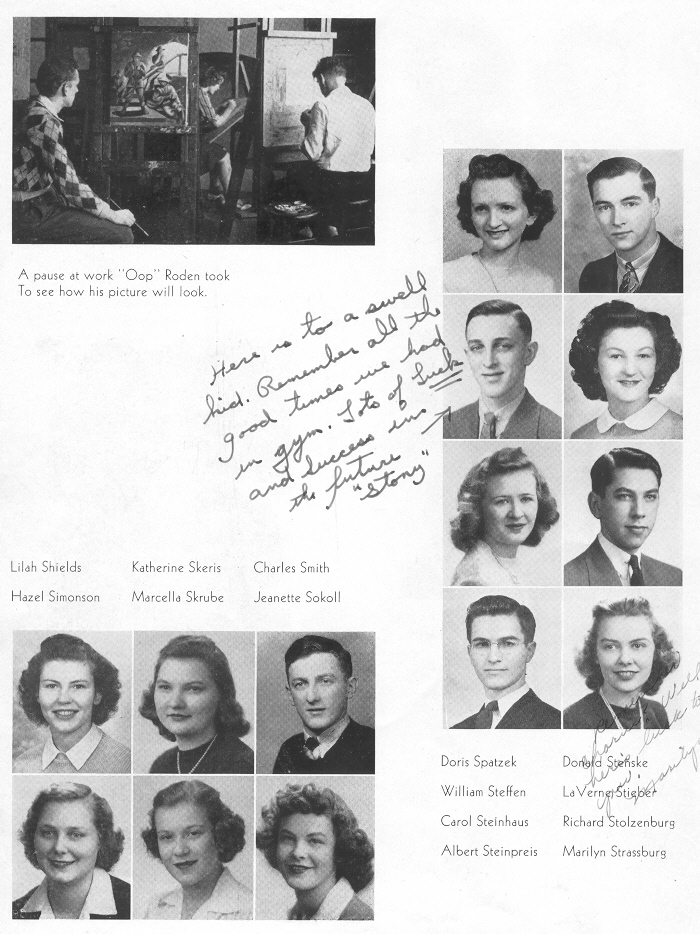 A pause at work "Oop" Roden took
To see how his picture will look.
Here is to a swell
kid. Remember all the
good times we had
in gym. Lots of Luck
and success in
the future
"Stony"
Lilah Shields Katherine Skeris Charles Smith
Hazel Simonson Marcella Skrube Jeanette Sokoll
Doris Spatzek Donald Stenske
William Steffen LaVerne Stieber
Carol Steinhaus Richard Stolzenburg
Albert Steinpreis Marilyn Strassburg
here's luck to
you!